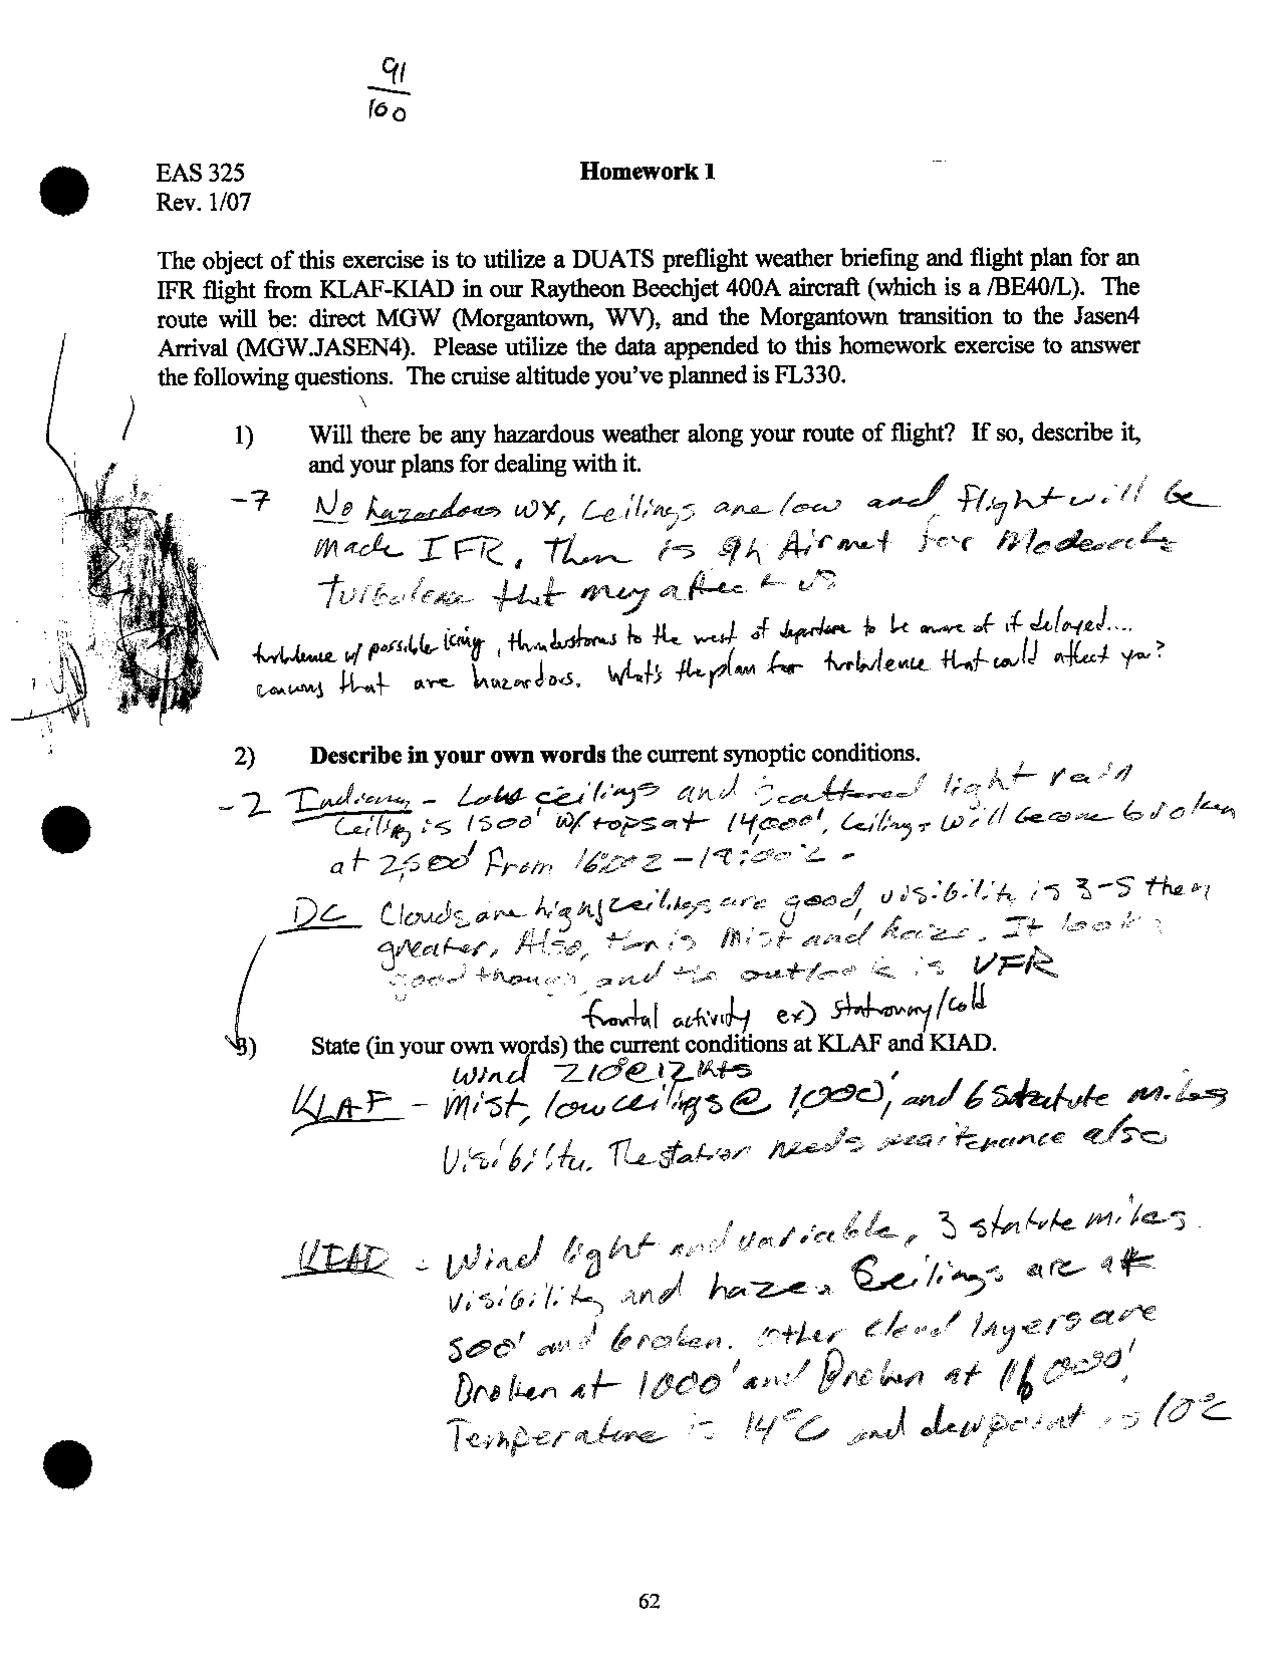 91
100
EAS 325
Homework 1
Rev. 1/07
The object of this exercise is to utilize a DUATS preflight weather briefing and flight plan for an
IFR flight from KLAF-KIAD in our Raytheon Beechjet 400A aircraft (which is a /BE40/L). The
route will be: direct MGW (Morgantown, WV), and the Morgantown transition to the Jasen4
Arrival (MGW.JASEN4). Please utilize the data appended to this homework exercise to answer
the following questions. The cruise altitude you've planned is FL330.
1) Will there be any hazardous weather along your route of flight? If so, describe it,
and your plans for dealing with it.
-7 No hazardous wx, Ceilings are low and flight will be
made IFR. There is an Airmet for Moderate
turbulence that may affect us
turbulence w/ possible icing, thunderstorms to the west of departure to be aware of if delayed....
that are hazardous. What's the plan for turbulence that could affect you?
2) Describe in your own words the current synoptic conditions.
-2 Indiana - Low ceilings and scattered light rain
Ceiling is 1500' w/ tops at 14,000'. Ceilings will become broken
at 2,500' from
DC Clouds are high, ceilings are good, visibility is 3-5 then
greater. Also, there is mist and haze. It looks
good though, and the outlook is VFR
frontal activity ex) stationary/cold
3) State (in your own words) the current conditions at KLAF and KIAD.
Wind 210@12kts
KLAF - Mist, low ceilings @ 1,000', and 6 Statute miles
Visibility. The station needs maitenance also
KIAD - Wind light and variable, 3 statute miles
visibility and haze. Ceilings are at
500' and broken. Other cloud layers are
Broken at 1000' and Broken at 16000'.
Temperature is 14°C and dewpoint is 10°C
62